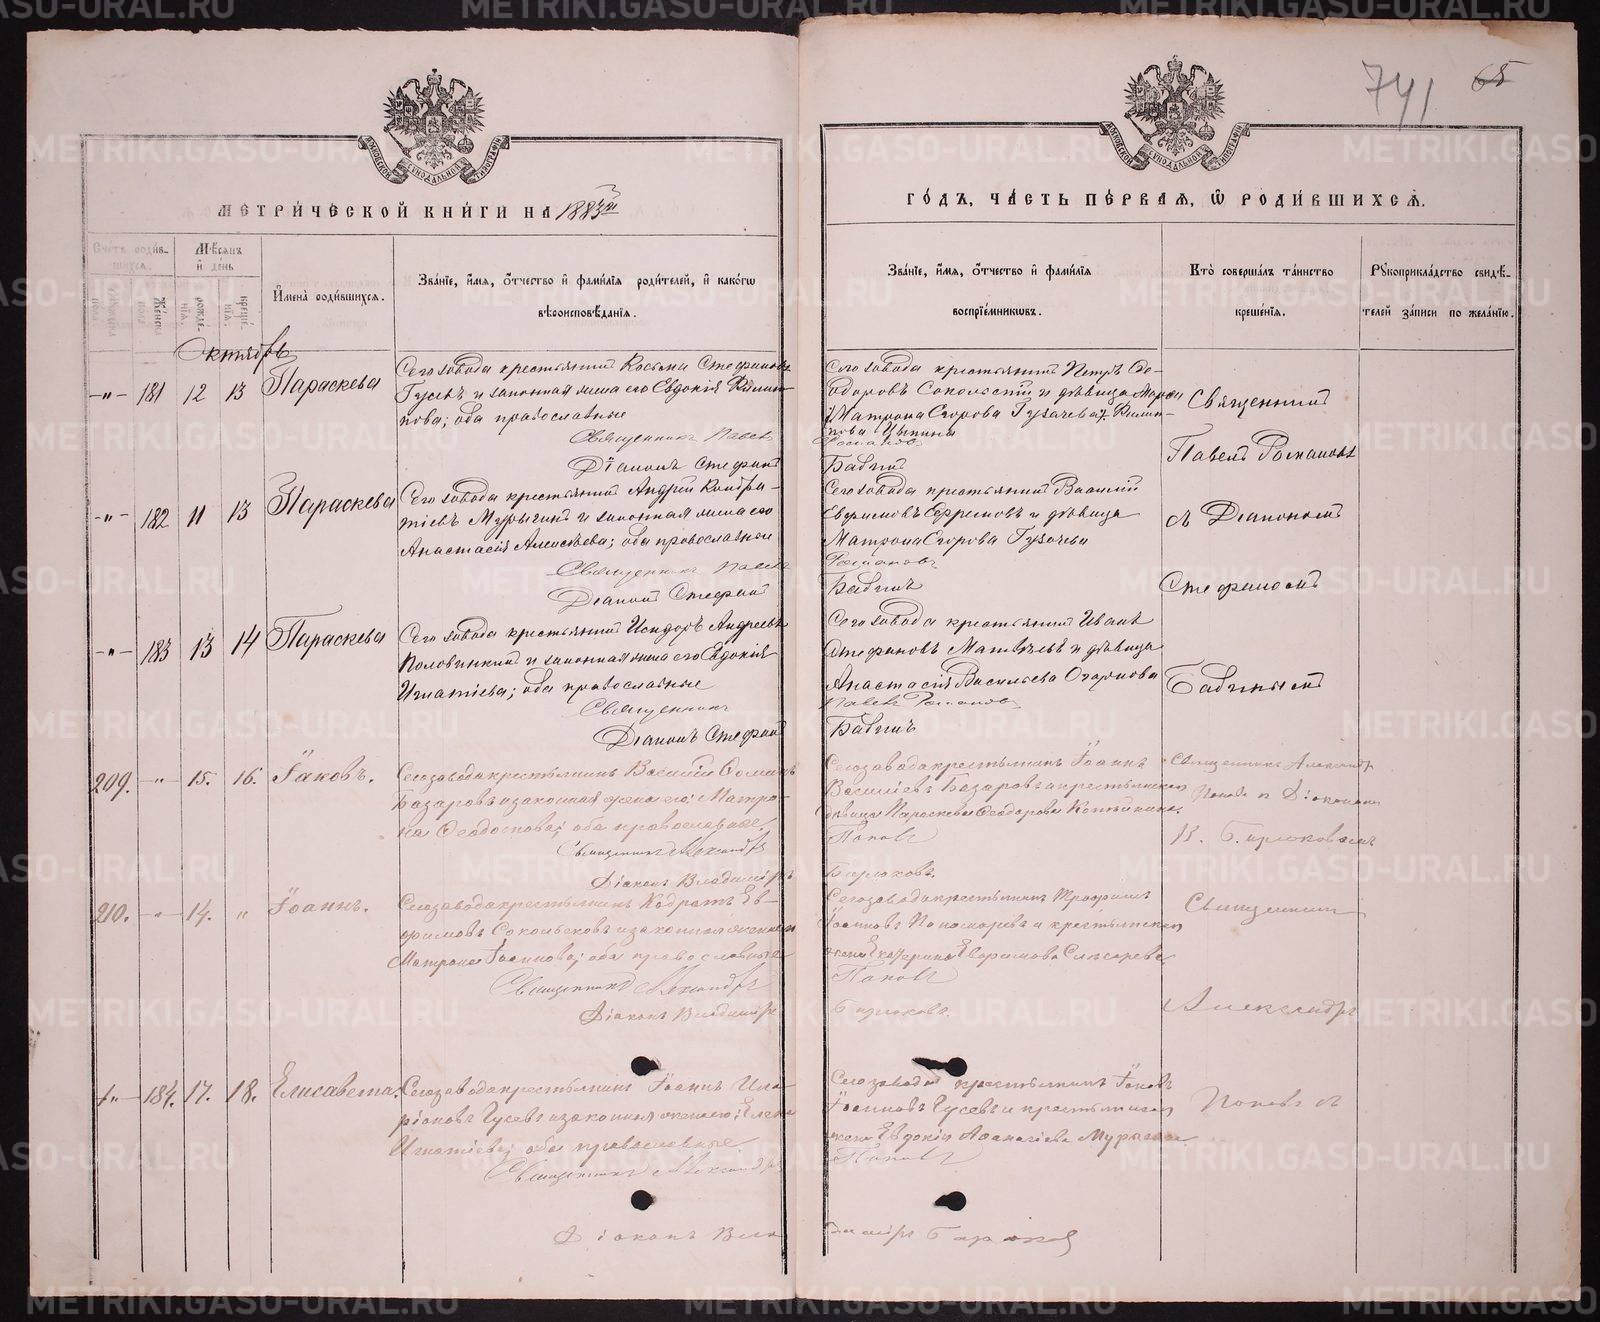 741 65
МОСКОВСКОЙ СѴНОДАЛЬНОЙ ТИПОГРАФІИ
МОСКОВСКОЙ СѴНОДАЛЬНОЙ ТИПОГРАФІИ
МЕТРИ́ЧЕСКОЙ КНИ́ГИ НА 1883й
ГО́ДЪ, ЧА́СТЬ ПЕ́РВАЯ, Ѡ РОДИ́ВШИХСЯ.
Счетъ роди́в-
шихся.
Мѣ́сяцъ
и҆ де́нь
Же́нска
рожде-
нія.
креще́-
нія.
И҆мена̀ роди́вшихся.
Зва́нїе, и҆́мя, ѻ҆́тчество и҆ фами́лїя роди́телей, и҆ како́гѡ
вѣроисповѣ́данїя.
Зва́нїе, и҆́мя, ѻ҆́тчество и҆ фами́лїя
воспрїе́мникѡвъ.
Кто̀ соверша́лъ та́инство
креще́нїя.
Рꙋкоприкла́дство свидѣ́-
телей за́писи по жела́нїю.
Октябрь
-"- 181 12 13 Параскева
Сего завода крестьянинъ Косьма Стефановъ
Гусевъ и законная жена его Евдокія Филип-
пова; оба православные
Священникъ Павелъ
Діаконъ Стефанъ
Сего завода крестьянинъ Петръ Ѳе-
одоровъ Сокольскій и дѣвица
Матрона Егорова Гузачева
Романовъ
Бабинъ
Священникъ
Павелъ Романовъ
-"- 182 11 13 Параскева
Сего завода крестьянинъ Андрей Кондра-
тіевъ Мурыгинъ и законная жена его
Анастасія Алексѣева; оба православные
Священникъ Павелъ
Діаконъ Стефанъ
Сего завода крестьянинъ Василій
Евфимовъ Ефремовъ и дѣвица
Матрона Егорова Гузачева
Романовъ
Бабинъ
съ Діакономъ
Стефаномъ
-"- 183 13 14 Параскева
Сего завода крестьянинъ Исидоръ Андреевъ
Половинкинъ и законная жена его Евдокія
Игнатіева; оба православные
Священникъ
Діаконъ Стефанъ
Сего завода крестьянинъ Иванъ
Стефановъ Матвѣевъ и дѣвица
Анастасія Васильева
Павелъ Романовъ
Бабинъ
Бабинымъ
209. -"- 15. 16. Іаковъ.
Сего завода крестьянинъ Василій
Базаровъ и законная жена его Матро-
на Ѳеодотова; оба православные.
Священникъ Александръ
Діаконъ Владиміръ
Сего завода крестьянинъ Іоаннъ
Василіевъ Базаровъ и крестьянская
дѣвица Параскева Ѳеодорова
Поповъ
Бирюковъ.
Священникъ Александръ
Поповъ съ Діакономъ
В. Бирюковымъ
210. -"- 14. " Іоаннъ.
Сего завода крестьянинъ Кодратъ Ев-
фимовъ Сокольсковъ и законная жена его
Матрона Іоаннова; оба православные
Священникъ Александръ
Діаконъ Владиміръ
Сего завода крестьянинъ Трофимъ
Іоанновъ Пономаревъ и крестьянская
жена Екатерина Евфимова Слѣсарева.
Поповъ
Бирюковъ.
Священникъ
Александръ
-"- 184. 17. 18. Елисавета.
Сего завода крестьянинъ Іоаннъ Ила-
ріоновъ Гусевъ и законная жена его Елена
Игнатіева; оба православные
Священникъ Александръ
Діаконъ Вла
Сего завода крестьянинъ Іаковъ
Іоанновъ Гусевъ и крестьянская
жена Евдокія Аѳанасіева
Поповъ
диміръ Бирюковъ
Поповъ съ
METRIKI.GASO-URAL.RU